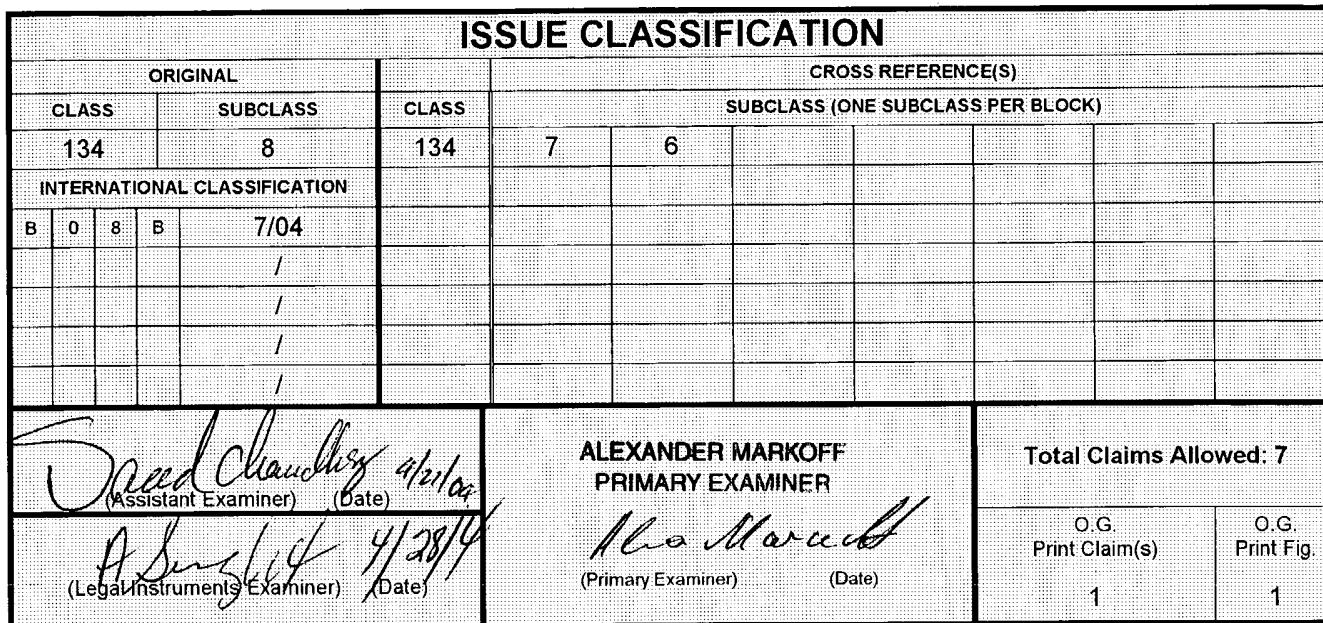 ISSUE CLASSIFICATION
ORIGINAL CROSS REFERENCE(S)
CLASS SUBCLASS CLASS SUBCLASS (ONE SUBCLASS PER BLOCK)
134 8 134 7 6
INTERNATIONAL CLASSIFICATION
B 0 8 B 7/04
/
/
/
/
Saeed Chaudhry 4/21/04
(Assistant Examiner) (Date)
4/28/4
(Legal Instruments Examiner) (Date)
ALEXANDER MARKOFF
PRIMARY EXAMINER
(Primary Examiner) (Date)
Total Claims Allowed: 7
O.G. Print Claim(s)
1
O.G. Print Fig.
1